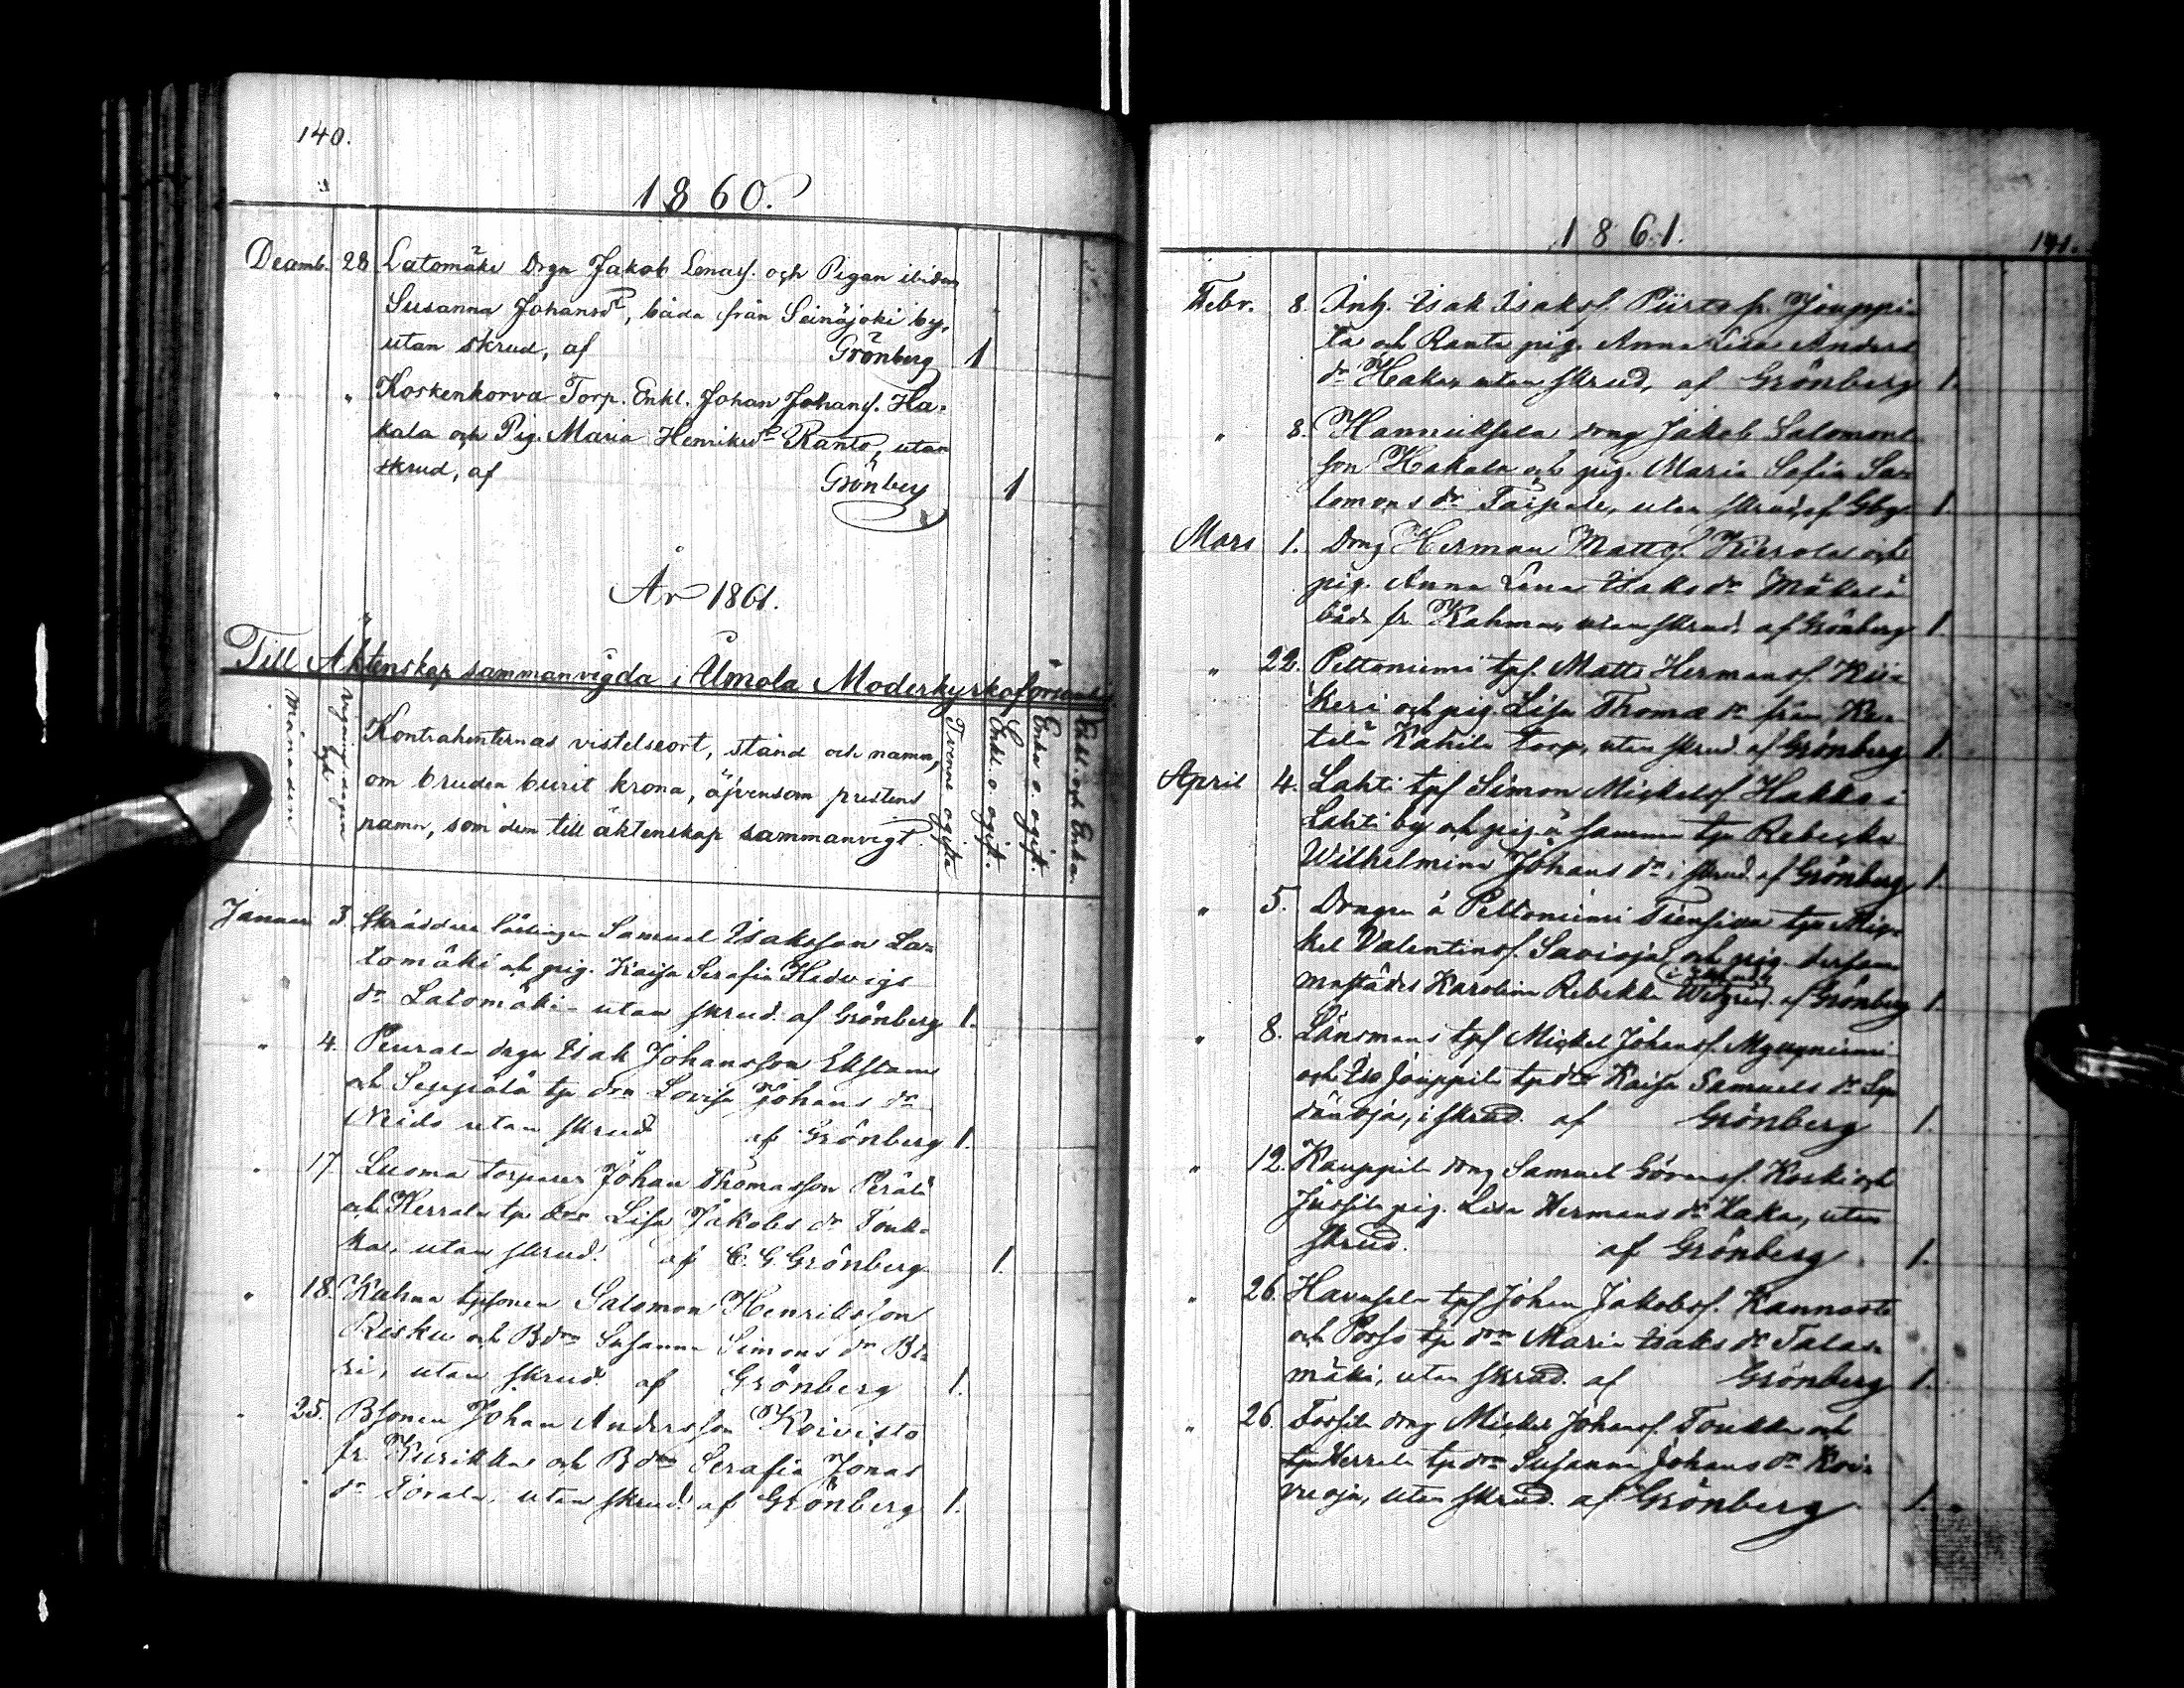 140.
1860.
Decemb. 28 Latomäki Drgn Jakob Lenaes. och Pigan ibidem
Susanna Johansdr, båda från Seinäjoki by,
utan skrud, af Grönberg 1
" " Koskenkorva Torp. Enkl. Johan Johans. Ha-
kala och Pig. Maria Henriksdr Ranto, utan
skrud, af Grönberg 1
År 1861.
Till Äktenskap sammanvigda i Ilmola Moderkyrkoförsamling
Månaden
Vigningsdagen
Kontrahenternas vistelseort, stånd och namn,
om bruden burit krona, äfvensom prestens
namn, som dem till äktenskap sammanvigt.
Tvenne ogifta
Enkl. o. ogift.
Enka o. ogift.
Enkl. och Enka.
Januari 3 Skräddare lärlingen Samuel Isaksson La-
tomäki och pig. Kaisa Serafia Hedvigs
dr Latomäki utan skrud. af Grönberg 1.
" 4. Peurala drgn Isak Johansson Ekstam
och Seppälä tp drn Lovisa Johans dr
Neido utan skrud af Grönberg 1.
" 17 Luoma torparen Johan Thomasson Perälä
och Herrala tp drn Lisa Jakobs dr Touk-
ka, utan skrud. af C. G. Grönberg 1.
" 18. Kahna tpsonen Salomon Henriksson
Risku och Bdrn Susanna Simons dr
utan skrud. af Grönberg 1.
" 25. Bsonen Johan Andersson Koivisto
fr. Kurikka och Bdrn Serafia Jonas
dr utan skrud. af Grönberg 1.
1861.
141.
Febr. 8. Inh. Isak Isakss. Piirto fr. Jouppi-
la och Ranta pig. Anna Lisa Anders
dr Haka, utan skrud, af Grönberg 1.
" 8. Hannuksela drng Jakob Salomons
son Hakala och pig. Maria Sofia Sa-
lomons dr Taipale, utan skrud, af Gbg 1.
Mars 1. Drng Herman Mattss. och
pig. Anna Lena Isaks dr Mäkelä
båda fr Kahma, utan skrud. af Grönberg 1.
" 22. Peltoniemi tps. Matts Hermanss. Kii-
keri och pig. Lisa Thomæ dr från
Kahila torp, utan skrud. af Grönberg 1.
April 4. Lahti tps Simon Mickelss. Hakko i
Lahti by och pig. å samma tp Rebecka
Wilhelmina Johans dr i skrud. af Grönberg 1.
" 5. Drngen å Peltoniemi tp Mic-
kel Valentinss. Savioja, och pig. dersam-
mastädes Karolina Rebekka i skrud, af Grönberg 1.
" 8. Länsmans tps Mickel Johanss. Myllyniemi
och Jouppila tp drn Kaisa Samuels dr Sy-
dänoja, i skrud. af Grönberg 1.
" 12. Kauppila drng Samuel Göranss. Koski och
Jussila pig. Lisa Hermans dr Haka, utan
skrud. af Grönberg 1.
" 26. tps Johan Jakobss. Kannosto
och Porso tp drn Maria Isaks dr Talas-
mäki, utan skrud. af Grönberg 1.
" 26. drng Mickel Johanss. Toukka och
tp Herrala tp drn Susanna Johans dr Koi-
vuoja, utan skrud. af Grönberg 1.